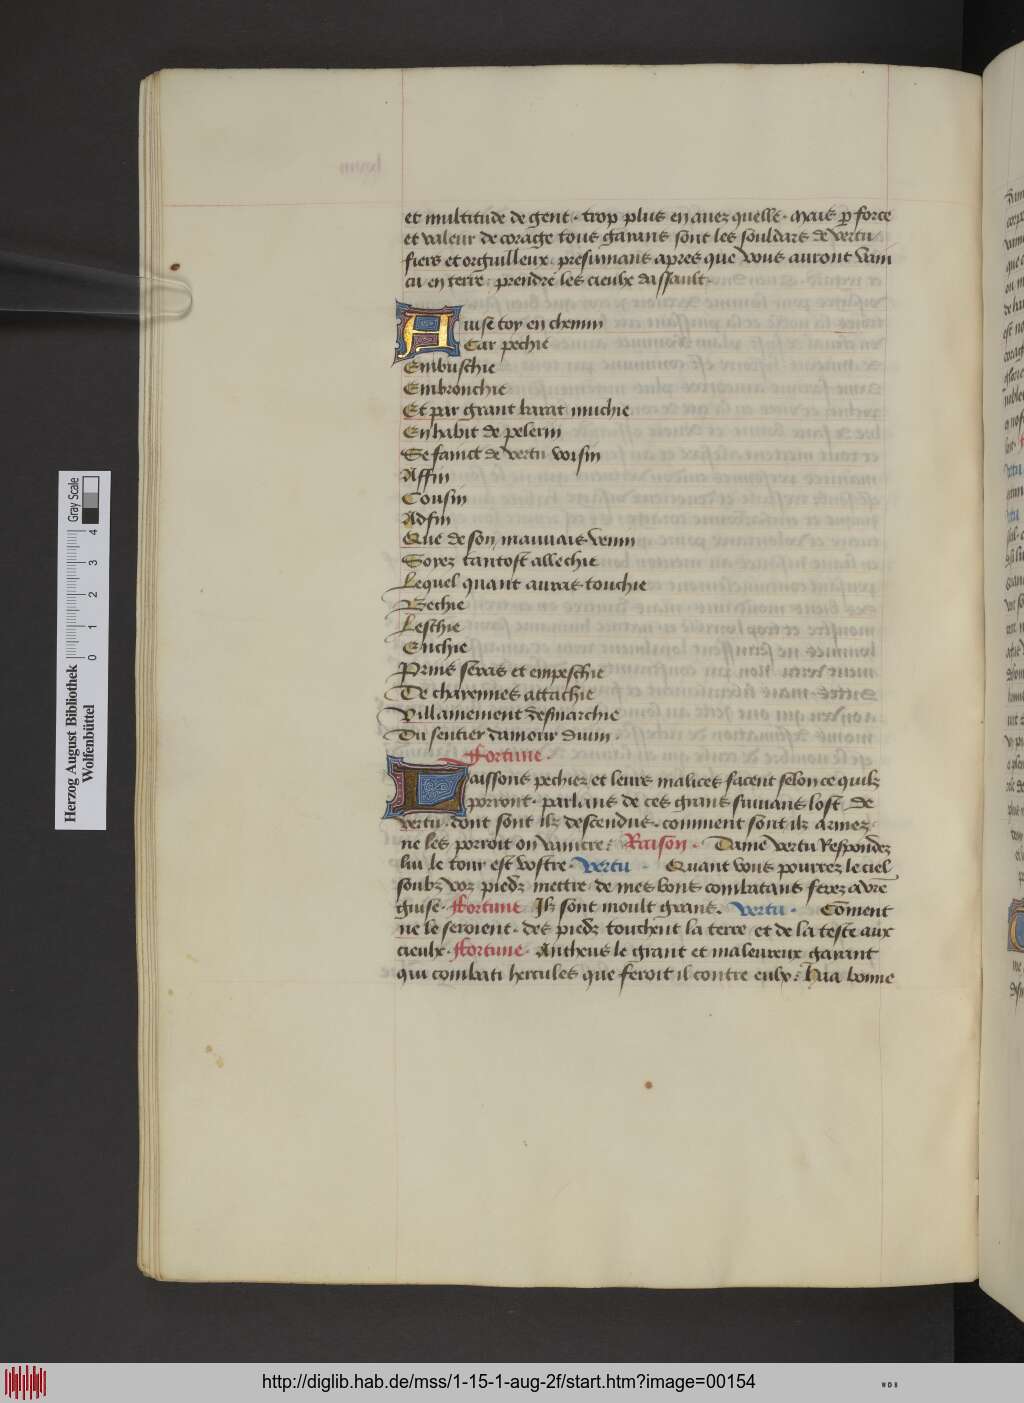 et multitude de gent · trop plus en auez quelle · Mais p force
et valeur de corage tous garans sont les souldars de vertu
fiers et orguilleux · presumans apres que vous auront vain
cu en terre · prendre les cieulx dassault ·
Auise toy en chemin
Car pechie
Embuschie
Embronchie
Et par grant barat muchie
En habit de pelerin
Se fainct de vertu voisin
Affin
Cousin
Adfin
Que de son mauuais venin
Soyez tantost allechie
Lequel quant auras touchie
Bechie
Leschie
Euchie
Prins seras et empeschie
De chayennes attachie
Villainement desmarchie
Du sentier damour diuin ·
Fortune ·
Laissons pechiez et leurs malices facent selon ce quilz
porront · parlans de ces grans suiuans lost de
vertu · dont sont ilz descendus · comment sont ilz armez
ne les porroit on vaincre : Raison · Dame vertu Respondez
lui le tour est vostre · Vertu · Quant vous pourrez le ciel
soubz voz piedz mettre de mes bons combatans ferez a vre
guise · Fortune Ilz sont moult grans. Vertu · Coment
ne le seroient · des piedz touchent la terre et de la teste aux
cieulx · Fortune · Antheus le grant et maleureux garant
qui combati hercules que feroit il contre eulx : Haa bonne
Herzog August Bibliothek
Wolfenbüttel
0 1 2 3 4
Gray Scale
http://diglib.hab.de/mss/1-15-1-aug-2f/start.htm?image=00154
WDB